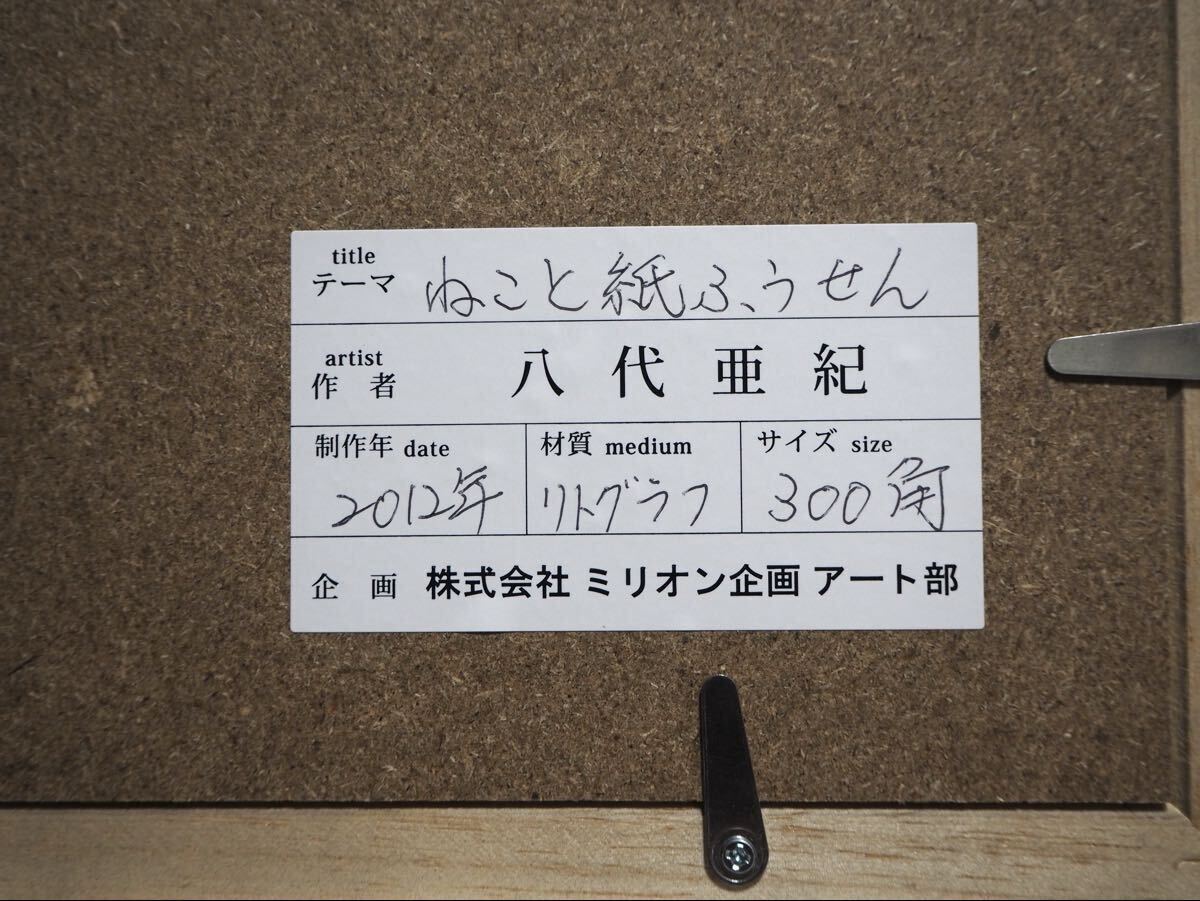 title
テーマ ねこと紙ふうせん
artist
作者 八代亜紀
制作年 date 材質 medium サイズ size
2012年 リトグラフ 300角
企画 株式会社 ミリオン企画 アート部